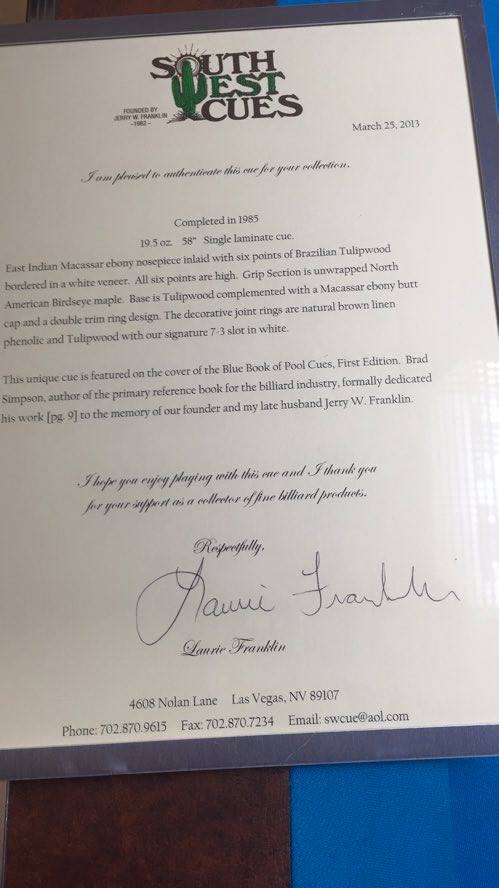 SOUTH
WEST
CUES
FOUNDED BY
JERRY W. FRANKLIN
-1982-
March 25, 2013
I am pleased to authenticate this cue for your collection.
Completed in 1985
19.5 oz. 58" Single laminate cue.
East Indian Macassar ebony nosepiece inlaid with six points of Brazilian Tulipwood
bordered in a white veneer. All six points are high. Grip Section is unwrapped North
American Birdseye maple. Base is Tulipwood complemented with a Macassar ebony butt
cap and a double trim ring design. The decorative joint rings are natural brown linen
phenolic and Tulipwood with our signature 7-3 slot in white.
This unique cue is featured on the cover of the Blue Book of Pool Cues, First Edition. Brad
Simpson, author of the primary reference book for the billiard industry, formally dedicated
his work [pg. 9] to the memory of our founder and my late husband Jerry W. Franklin.
I hope you enjoy playing with this cue and I thank you
for your support as a collector of fine billiard products.
Respectfully,
Laurie Franklin
Laurie Franklin
4608 Nolan Lane Las Vegas, NV 89107
Phone: 702.870.9615 Fax: 702.870.7234 Email: swcue@aol.com